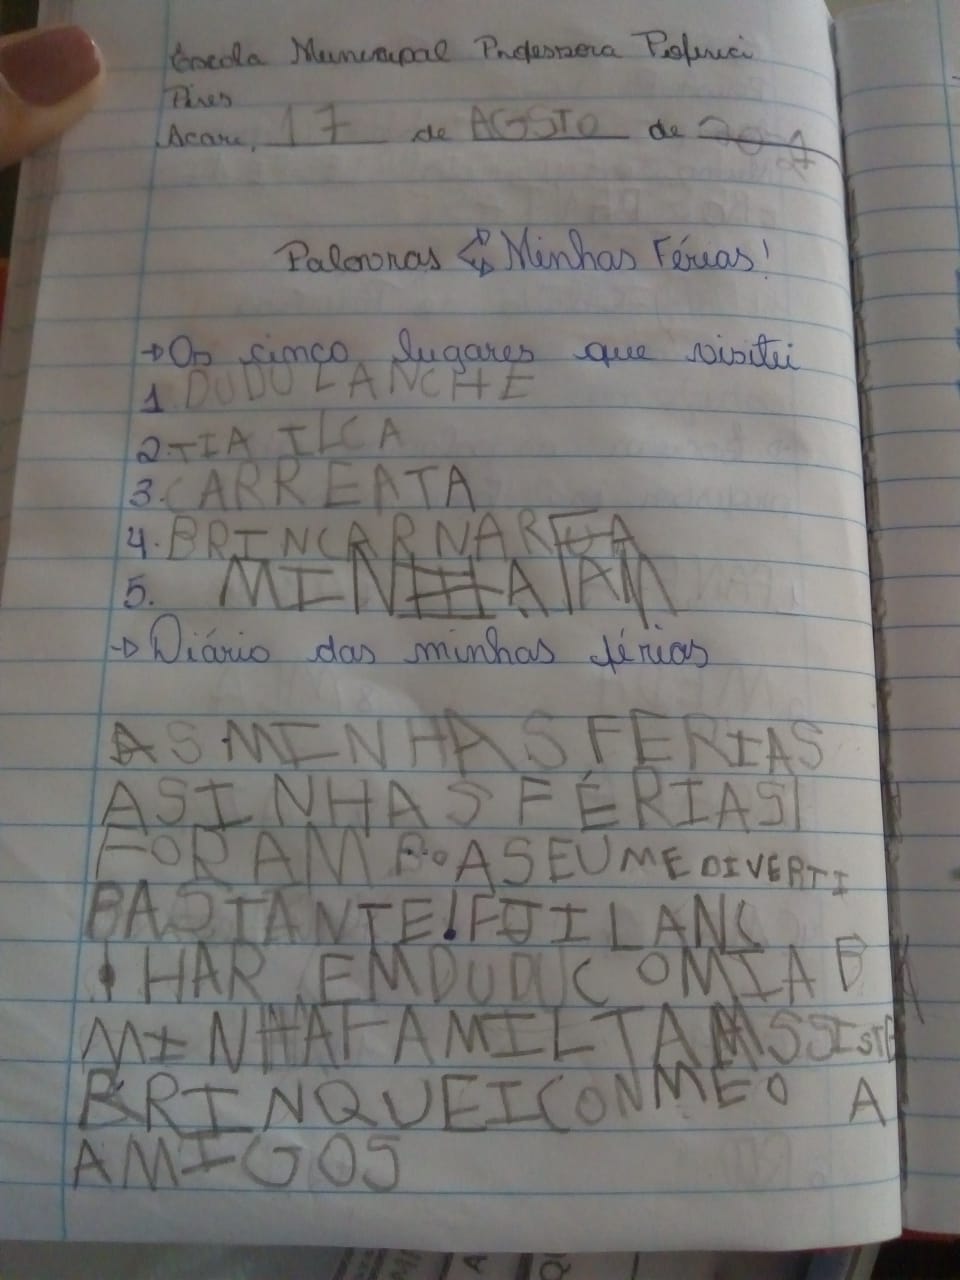 Escola Municipal Professora
Pires
Acari, 17 de AGSTO de
Palavras Minhas Férias!
→ Os cinco lugares que visitei
1. DUDU LANCHE
2. TIA ILCA
3. CARREATA
4. BRINCAR NA RUA
5. MINHA
→ Diário das minhas férias
AS MINHAS FERIAS
ASINHAS FÉRIAS
FORAM BOAS EU ME DIVERTI
BASTANTE! FUI LANC
HAR EM DUDU COMIA
MINHA FAMILIA
BRINQUEI CON MEO A
AMIGOS